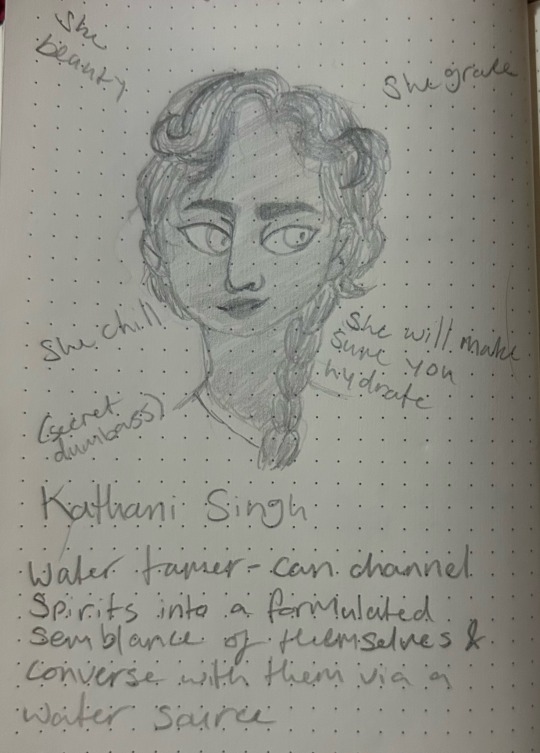 She
beauty
She grate
She chill
She will make
sure you
hydrate
(secret
dumbass)
Kathani Singh
Water tamer - can channel
Spirits into a formulated
semblance of themselves &
converse with them via a
water source